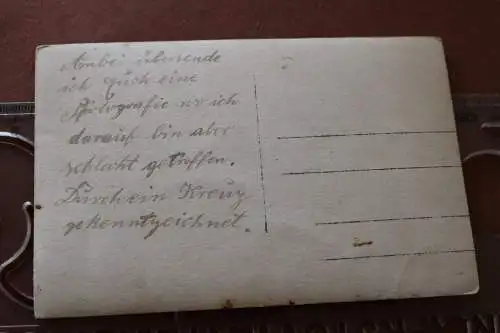 Anbei übersende
ich Euch eine
Fotografie wo ich
darauf bin aber
schlecht getroffen.
Durch ein Kreuz
gekenntzeichnet.